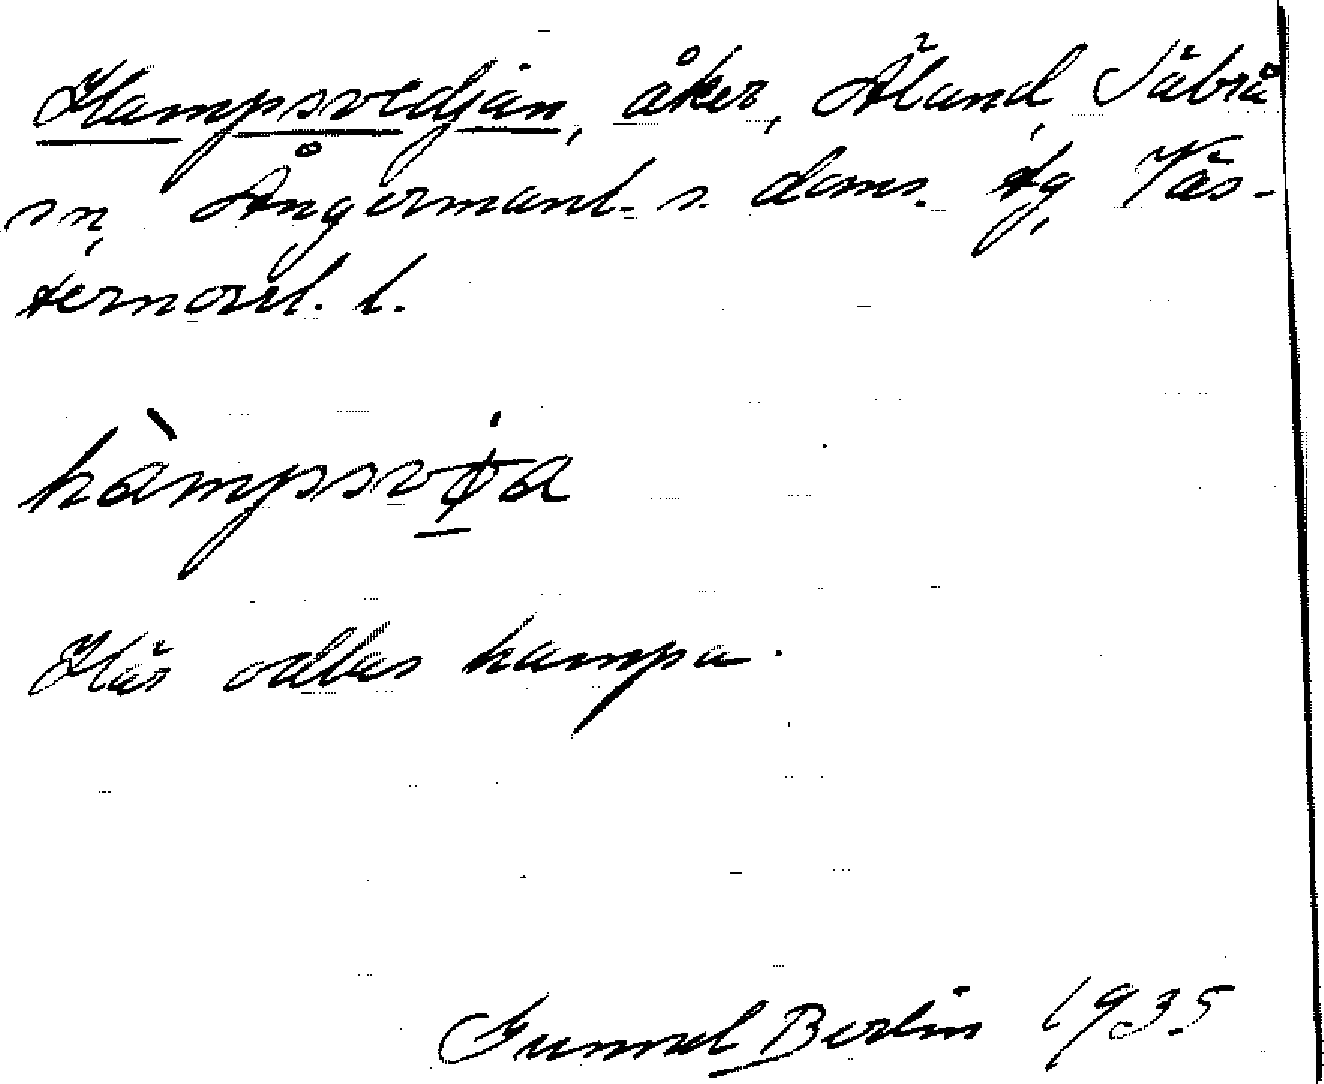 Hampsvedjan, åker, Äland, Säbrå
sn, Ångermanl. s. doms. tg, Väs-
ternorrl. l.
hàmpsvia
Här odlas hampa.
Gunnel Berlin 1935